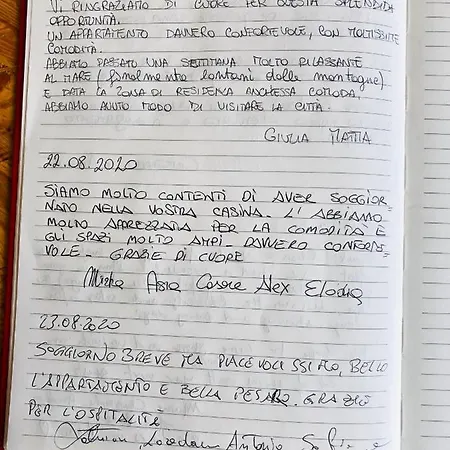 VI RINGRAZIAMO DI CUORE PER QUESTA SPLENDIDA
OPPORTUNITÀ.
UN APPARTAMENTO DAVVERO CONFORTEVOLE, CON MOLTISSIME
COMODITÀ.
ABBIAMO PASSATO UNA SETTIMANA MOLTO RILASSANTE
AL MARE (finalmente lontani dalle montagne)
E DATA LA ZONA DI RESIDENZA ANCHESSA COMODA,
ABBIAMO AVUTO MODO DI VISITARE LA CITTÀ.
GIULIA MATTIA
22.08.2020
SIAMO MOLTO CONTENTI DI AVER SOGGIOR-
NATO NELLA VOSTRA CASINA. L'ABBIAMO
MOLTO APPREZZATA PER LA COMODITÀ E
GLI SPAZI MOLTO AMPI. DAVVERO CONFORTE-
VOLE. GRAZIE DI CUORE
Asia Alex
23.08.2020
SOGGIORNO BREVE MA PIACEVOLISSIMO, BELLO
L'APPARTAMENTO E BELLA PESARO. GRAZIE
PER L'OSPITALITÀ
Loredana Antonio